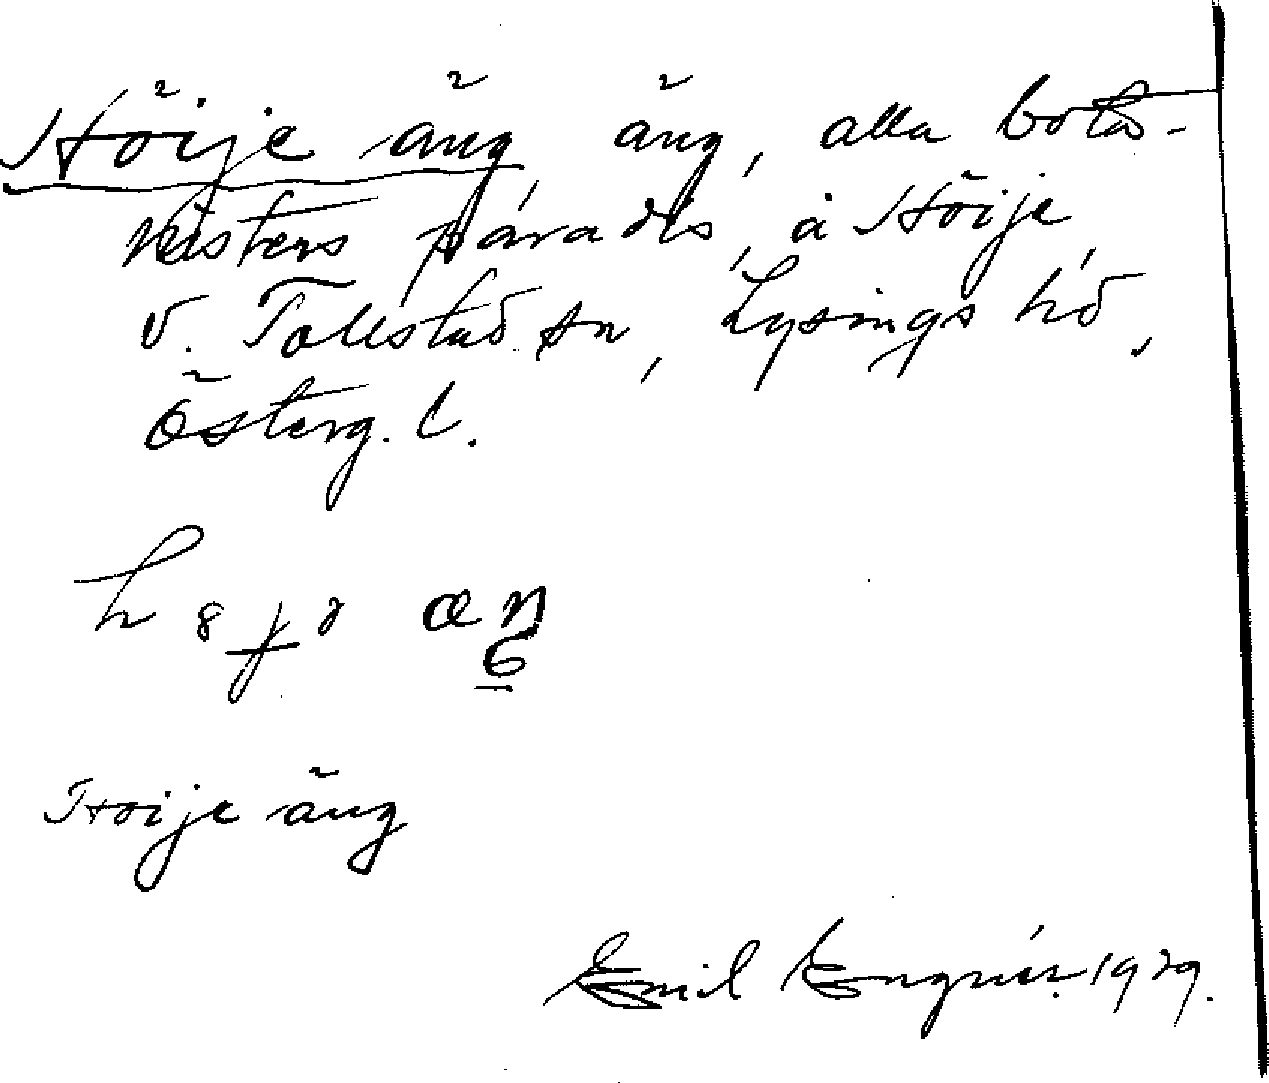 Höije äng, äng, alla bota-
nisters paradis, å Höije,
V. Tollstad sn, Lysings hd,
Österg. l.
Höije äng
Emil Engnér. 1929.